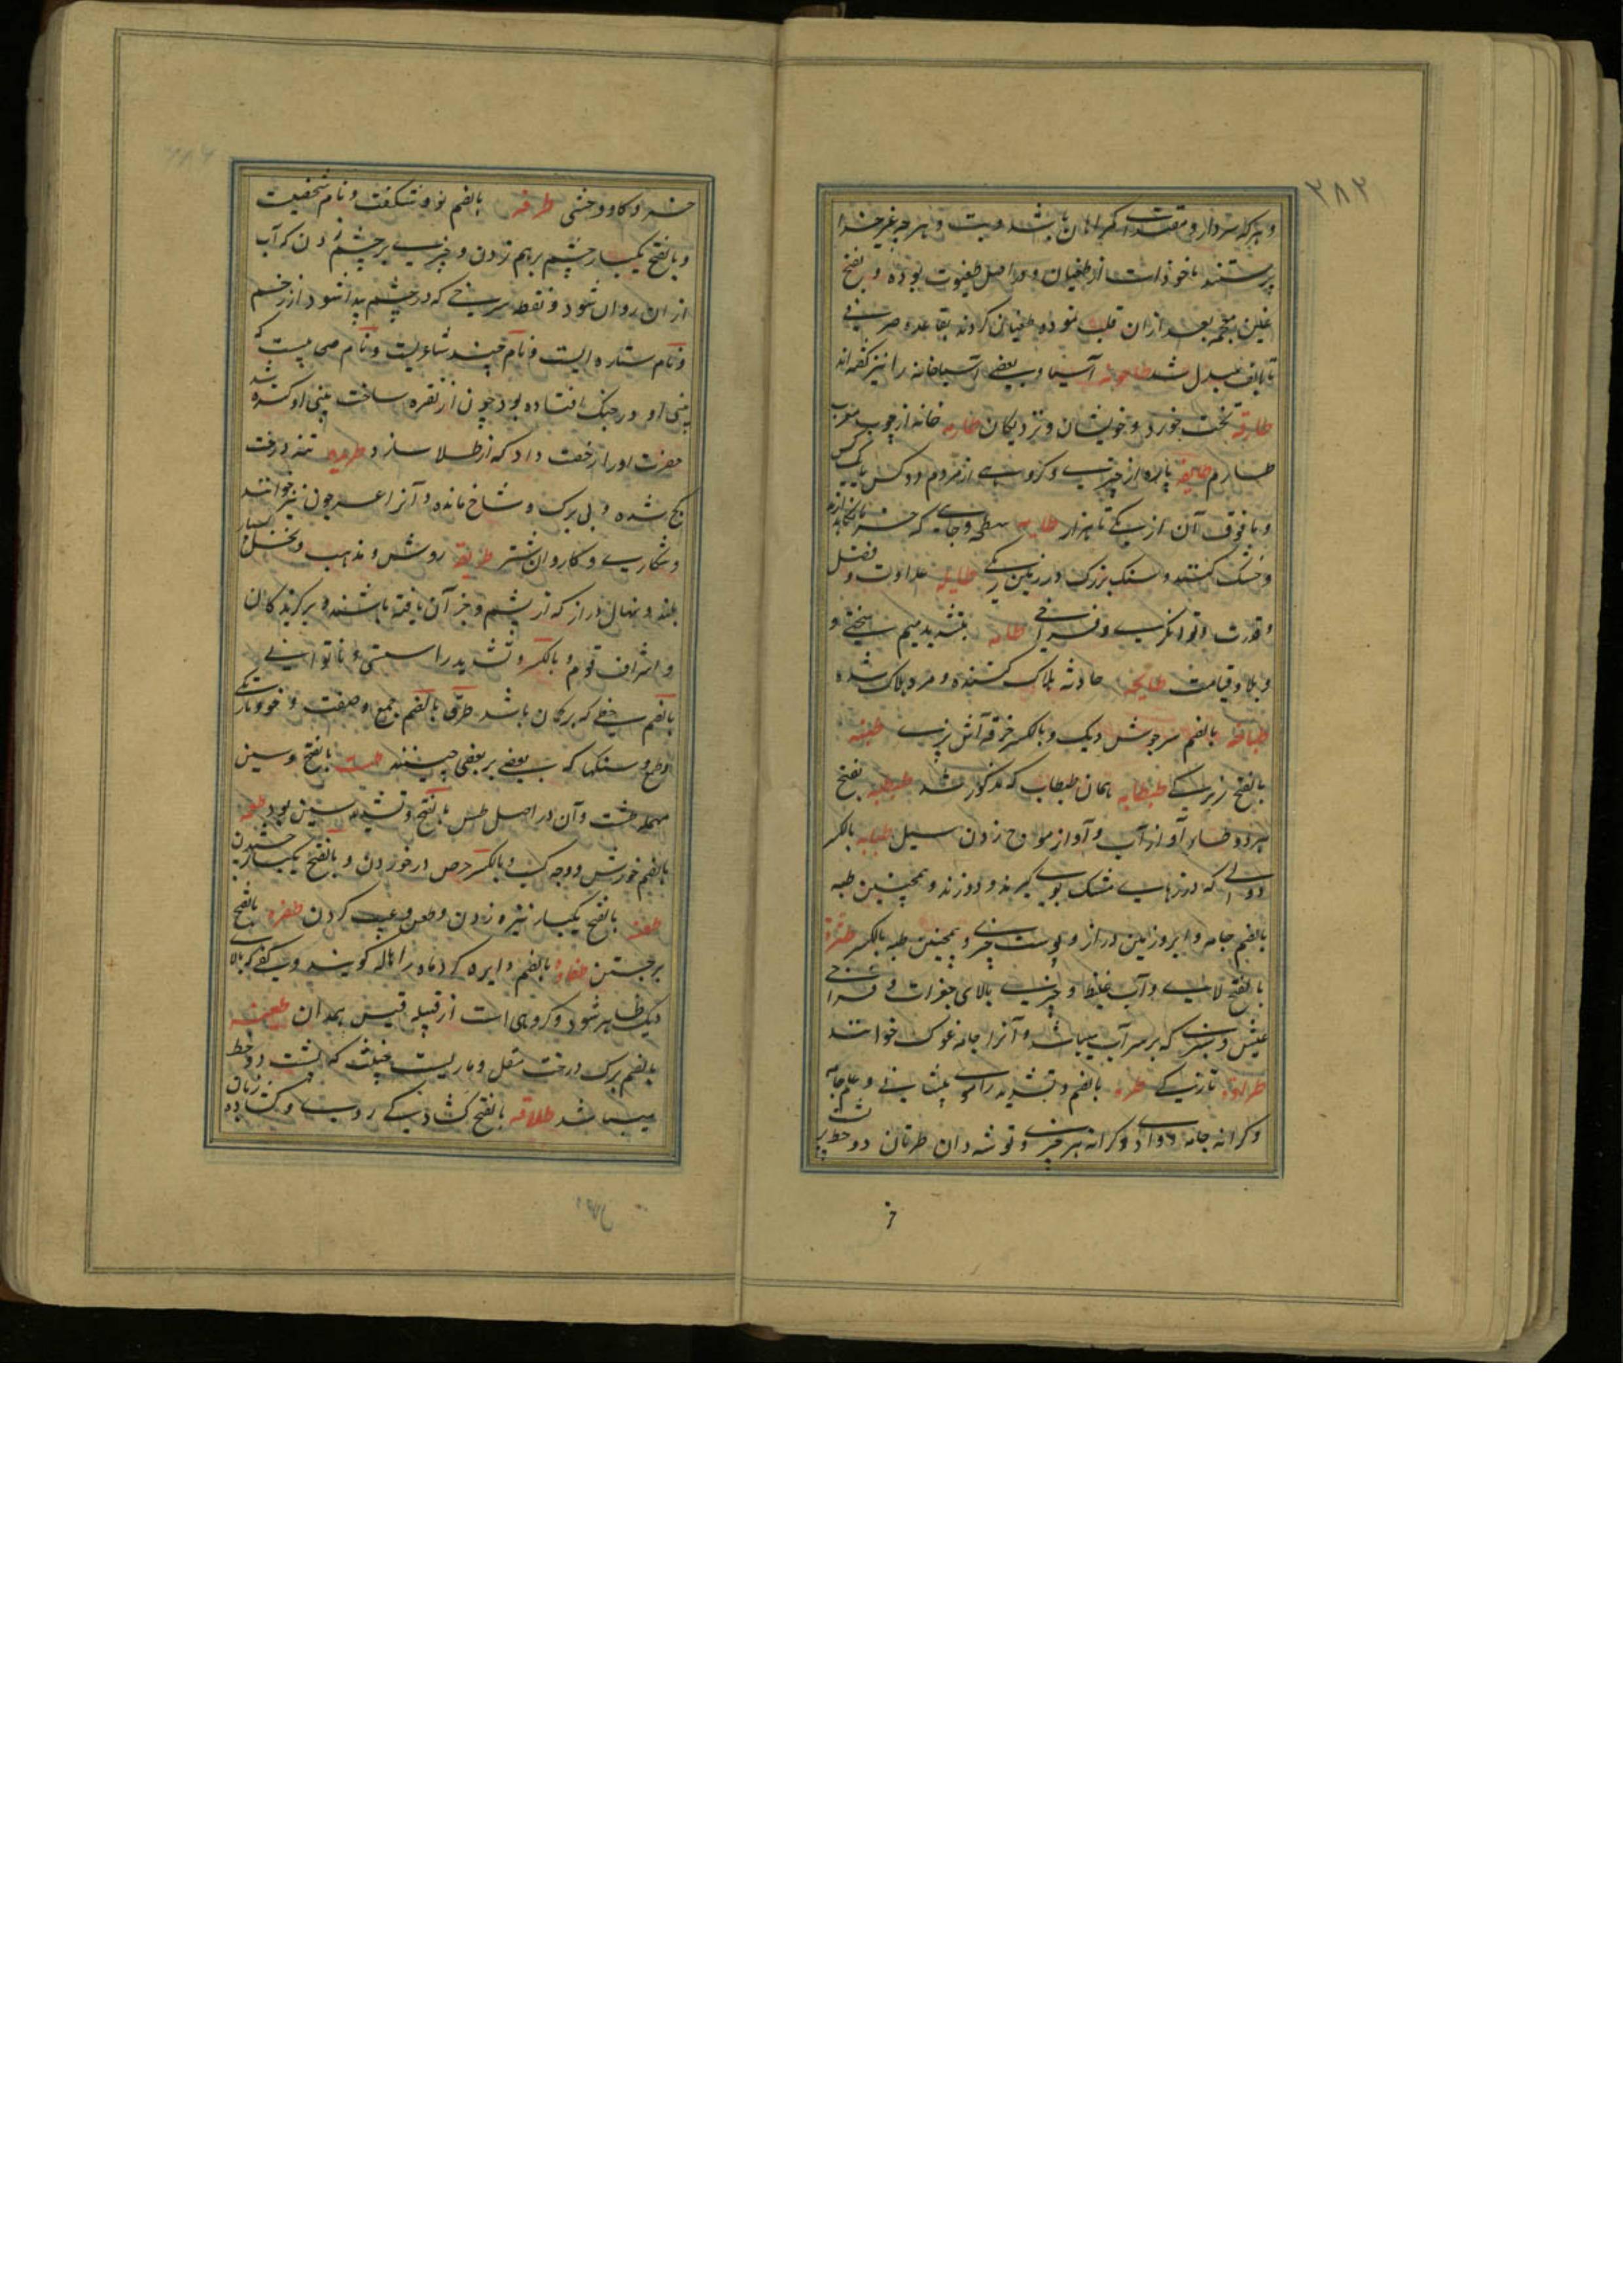 ۲۸۲
و هر که سردار و مقتدای کمراهان باشد و بت و هر چه غیر خدا
پرستند ماخوذ است از طغیان و در اصل طغیوت بوده و بفتح
غین معجمه بعد از ان قلب نموده طغیان کردند بقاعده صرفی
تا بالف مبدل شد طاحونه آسیا و بعضی آسیاخانه را نیز گفته اند
طارقة تخت خورد و خویشان و نزدیکان طارمه خانه از چوب معرب
طارم طایفه پاره از چیزی و کروهی از مردم و دو کس یا یک کس
و ما فوق آن از یکی تا هزار طایه سطح و جای که خرما
و خشک کنند و سنک بزرک در زمین ریک طایله عداوت و فضل
و قدرت و توانکری و فراخی طامه بتشدید میم سختی و
و بلا و قیامت طایحه حادثه هلاک کننده و مرد هلاک شده
طباخه بالضم سرجوش دیک و بالکسر خرقه آتش پزی طبنه
بالفتح زیرکی طبطابه همان طبطاب که مذکور شد طبطبه بفتح
هر دو طا آواز آب و آواز موج زدن سیل طبابه بالکسر
دوالی که در زهای مشک بوی کیرند و دوزند و همچنین طبه
بالضم جامه و ابر و زمین دراز و پوست چیزی و همچنین طبه بالکسر طثرة
بالفتح لای و آب غلیظ و چیزی بالای جغرات و فراخی
عیش و سبزی که بر سر آب میباشد و آنرا جامه غوک خوانند
طراوة تازکی طره بالضم و تشدید را موی پیشانی و علم جامه
و کرانه جامه و وادی و کرانه هر چیزی و توشه دان طرتان دو خط
خر
خر و کاو وحشی طرفه بالضم نو و شکفت و نام شخصیت
و بالفتح یکبار چشم بر هم زدن و چیزی بر چشم زدن که آب
از ان روان شود و نقطه سرخی که در چشم پیدا شود از زخم
و نام ستاره ایست و نام چند شاعریست و نام صحابیست که
بینی او در جنک افتاده بود چون از نقره ساخت بینی او کنده شد
حضرت او را رخصت داد که از طلا سازد طریده تنه درخت
کج شده و بی برک و شاخ مانده و آنرا عرجون نیز خوانند
و شکاری و کاروان شتر طریقة روش و مذهب و نخل بسیار
بلند و نهالی دراز که از پشم و جز آن بافته باشند و برکزیدکان
و اشراف قوم و بالکسر و تشدید را سستی و ناتوانی
بالضم خطی که بر کمان باشد طرق بالضم جمع و صفت و خوی و تاریکی
و طمع و سنکها که بعضی بر بعضی چینند طست بالفتح و سین
مهمله طشت و آن در اصل طس بالفتح و تشدید سین بود طعمه
بالضم خورش و وجه کسب و بالکسر حرص در خوردن و بالفتح یکبار چشیدن
طعنه بالفتح یکبار نیزه زدن و طعن و عیب کردن طفره بالفتح
برجستن طفاوة بالضم دایره که کرد ماه را هاله کویند و کفی که بالای
دیک ظاهر شود و کروهی است از قبیله قیس همدان طفیه
بالضم برک درخت مقل و ماریست خبیث که بر پشت دو خط
میباشد طلاقه بالفتح کشادکی روی و کشاده زبان